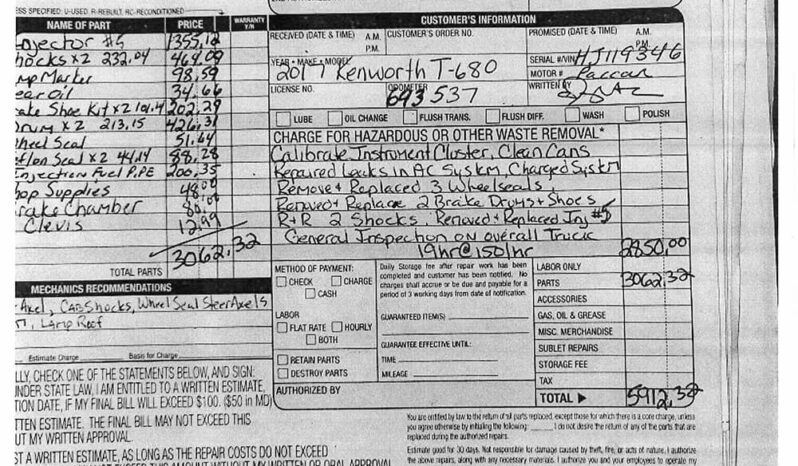 ESS SPECIFIED: U-USED, R-REBUILT, RC-RECONDITIONED
NAME OF PART PRICE WARRANTY Y/N
njector #5 1355.12
hocks x2 232.04 464.09
mp Marker 98.59
ear Oil 34.66
ake Shoe Kit x2 101.4 202.29
rum x2 213.15 426.31
heel Seal 51.64
eflon Seal x2 44.14 88.28
Injection Fuel P.PE 200.35
hop Supplies 48.00
rake Chamber 80.00
Clevis 12.99
TOTAL PARTS 3062.32
MECHANICS RECOMMENDATIONS
Axel, Cab Shocks, Wheel Seal Steer Axels
Lamp Roof
Estimate Charge Basis for Charge
LLY, CHECK ONE OF THE STATEMENTS BELOW, AND SIGN:
NDER STATE LAW, I AM ENTITLED TO A WRITTEN ESTIMATE,
TION DATE, IF MY FINAL BILL WILL EXCEED $100. ($50 in MD)
TTEN ESTIMATE. THE FINAL BILL MAY NOT EXCEED THIS
UT MY WRITTEN APPROVAL.
ST A WRITTEN ESTIMATE, AS LONG AS THE REPAIR COSTS DO NOT EXCEED
CUSTOMER'S INFORMATION
RECEIVED (DATE & TIME) A.M. P.M. CUSTOMER'S ORDER NO. PROMISED (DATE & TIME) A.M. P.M.
YEAR • MAKE • MODEL 2017 Kenworth T-680 SERIAL #/VIN# HJ119346
MOTOR # Paccar
LICENSE NO. ODOMETER 693537 WRITTEN BY
LUBE OIL CHANGE FLUSH TRANS. FLUSH DIFF. WASH POLISH
CHARGE FOR HAZARDOUS OR OTHER WASTE REMOVAL*
Calibrate Instrument Cluster, Clean Cans
Repaired Leaks in AC System, Charged Systm
Remove + Replaced 3 Wheelseals,
Removed + Replace 2 Brake Drums + Shoes
R+R 2 Shocks. Removed + Replaced Inj #5
General Inspection on overall Truck
19hr@150/hr 2850.00
METHOD OF PAYMENT:
CHECK CHARGE
CASH
LABOR
FLAT RATE HOURLY
BOTH
RETAIN PARTS
DESTROY PARTS
AUTHORIZED BY
Daily Storage fee after repair work has been
completed and customer has been notified. No
charges shall accrue or be due and payable for a
period of 3 working days from date of notification.
GUARANTEED ITEM(S)
GUARANTEE EFFECTIVE UNTIL:
TIME
MILEAGE
LABOR ONLY
PARTS 3062.32
ACCESSORIES
GAS, OIL & GREASE
MISC. MERCHANDISE
SUBLET REPAIRS
STORAGE FEE
TAX
TOTAL 5912.32
You are entitled by law to the return of all parts replaced, except those for which there is a core charge, unless
you agree otherwise by initialing the following: I do not desire the return of any of the parts that are
replaced during the authorized repairs.
Estimate good for 30 days. Not responsible for damage caused by theft, fire, or acts of nature. I authorize
the above repairs, along with any necessary materials. I authorize you and your employees to operate my